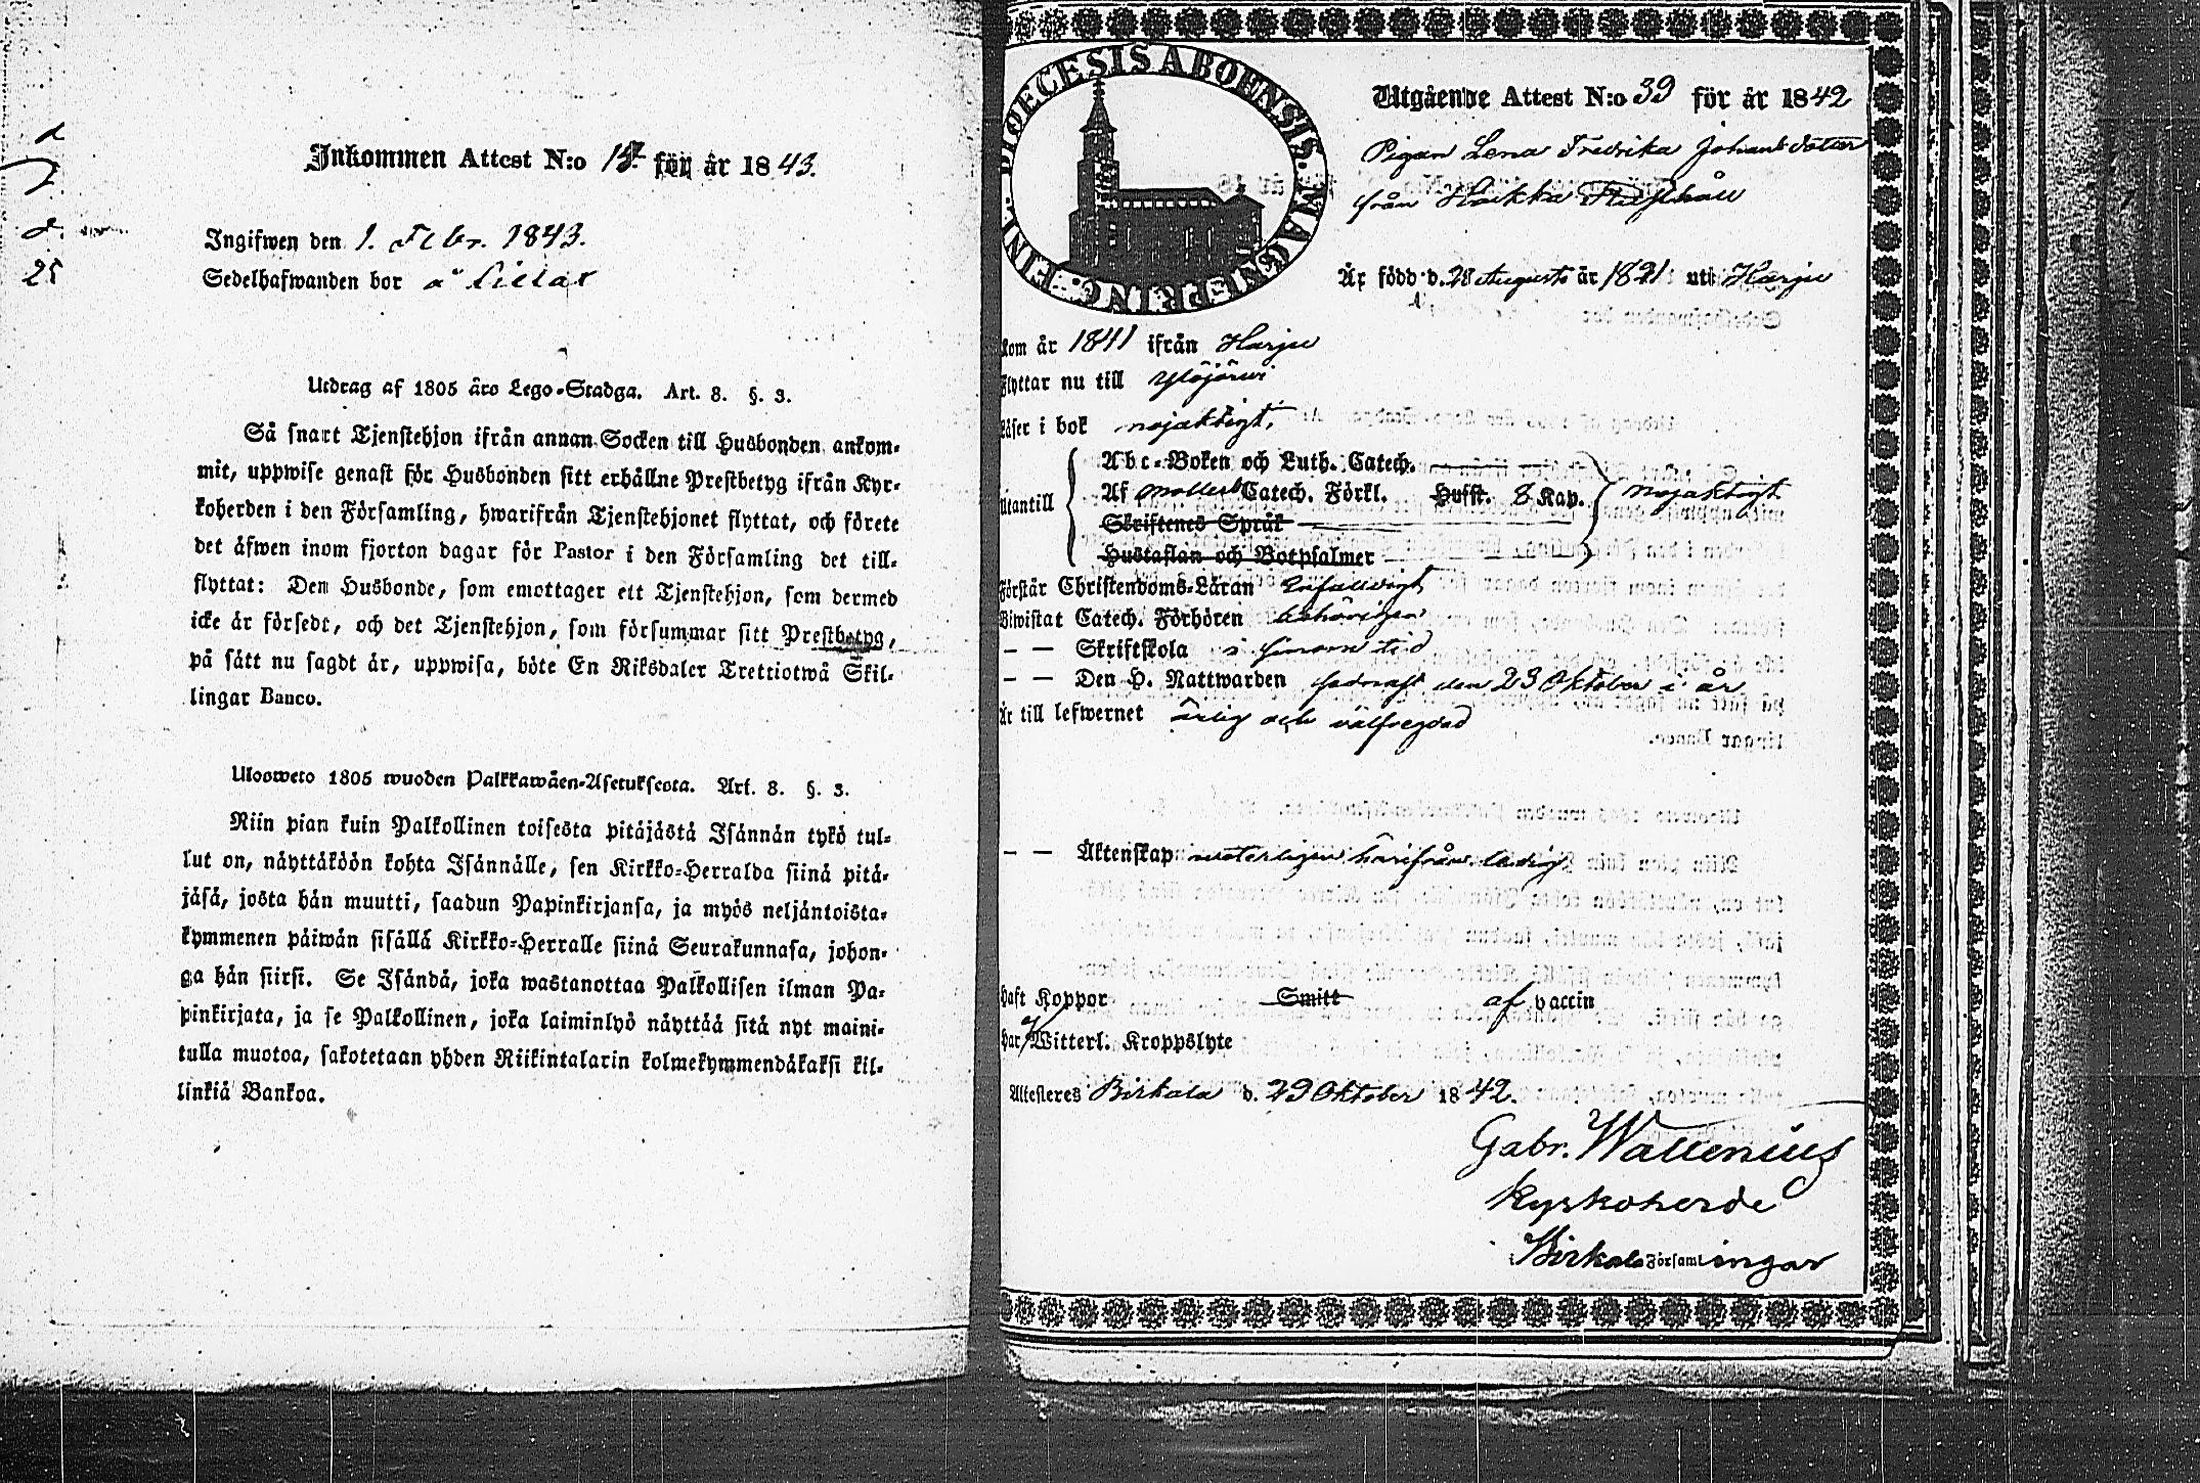 Inkommen Attest N:o för år 1843.
Ingifwen den 1. Febr. 1843.
Sedelhafwanden bor å
25
Utdrag af 1805 års Lego-Stadga. Art. 8. §. 3.
Så snart Tjenstehjon ifrån annan Socken till Husbonden ankom-
mit, uppwise genast för Husbonden sitt erhållne Prestbetyg ifrån Kyr-
koherden i den Församling, hwarifrån Tjenstehjonet flyttat, och förete
det äfwen inom fjorton dagar för Pastor i den Församling det till-
flyttat: Den Husbonde, som emottager ett Tjenstehjon, som dermed
icke är försedt, och det Tjenstehjon, som försummar sitt Prestbetyg,
på sätt nu sagdt är, uppwisa, böte En Riksdaler Trettiotwå Skil-
lingar Banco.
Ulosweto 1805 wuoden Palkkawäen-Asetuksesta. Art. 8. §. 3.
Niin pian kuin Palkollinen toisesta pitäjästä Isännän tykö tul-
lut on, näyttäköön kohta Isännälle, sen Kirkko-Herralda siinä pitä-
jäsä, josta hän muutti, saadun Papinkirjansa, ja myös neljäntoista-
kymmenen päiwän sisällä Kirkko-Herralle siinä Seurakunnasa, johon-
ga hän siirsi. Se Isändä, joka wastanottaa Palkollisen ilman Pa-
pinkirjata, ja se Palkollinen, joka laiminlyö näyttää sitä nyt maini-
tulla muotoa, sakotetaan yhden Riikintalarin kolmekymmendäkaksi kil-
linkiä Bankoa.
DIOECESIS ABOENSIS. MAGNI PRINC. FINL.
Utgående Attest N:o 39 för år 1842
Pigan Lena Fredrika Johansdotter
från Haikka
Är född d. 28 Augusti år 1821 uti Harju
kom år 1841 ifrån Harju
Flyttar nu till Ylöjärwi
Läser i bok nöjaktigt.
Utantill
Abc-Boken och Luth. Catech.
Af Möllers Catech. Förkl. Hufst. 8 Kap. nöjaktigt
Skriftenes Språk
Hustaflan och Botpsalmer
Förstår Christendoms-Läran enfaldigt
Biwistat Catech. Förhören behörigen
— — Skriftskola i sinom tid
— — Den H. Nattwarden sednast den 23 Oktober i år
Är till lefwernet ärlig och välfregdad
— — Äktenskap weterligen härifrån ledig
Haft Koppor Smitt af vaccin
Har ej Witterl. Kroppslyte
Attesteres Birkala d. 29 Oktober 1842.
Gabr. Wallenius
Kyrkoherde
i Birkala Församlingar